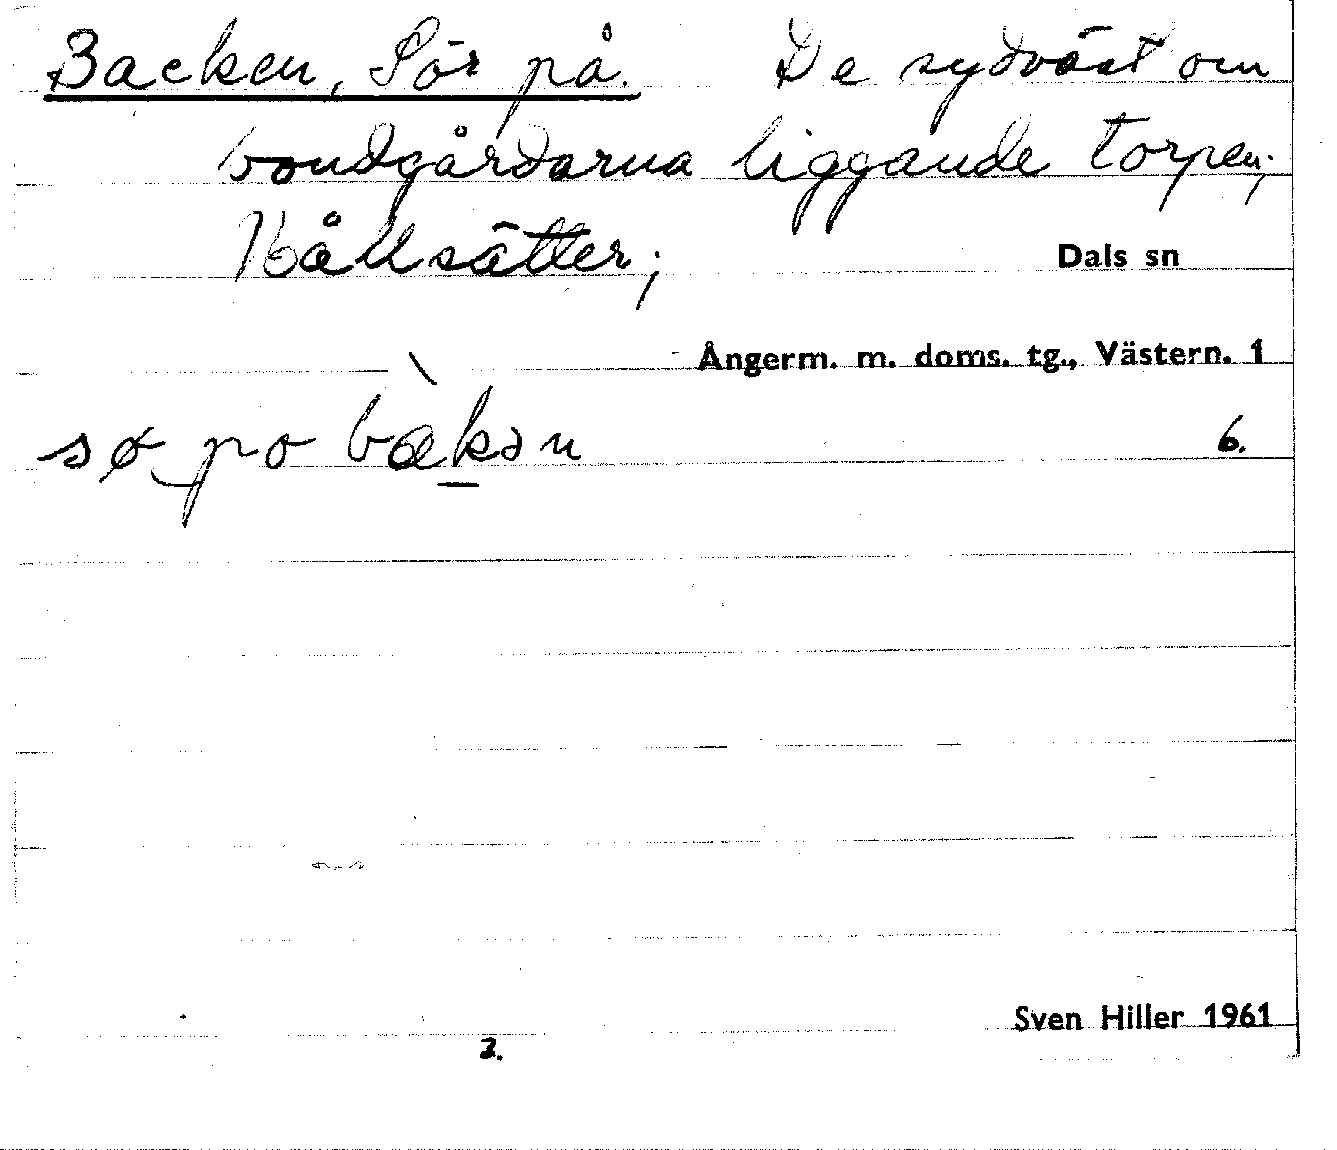 Backen, Sör på. De sydväst om
bondgårdarna liggande torpen;
Hållsätter;
Dals sn
Ångerm. m. doms. tg., Västern. 1
sø po bàkən
6.
Sven Hiller 1961
2.